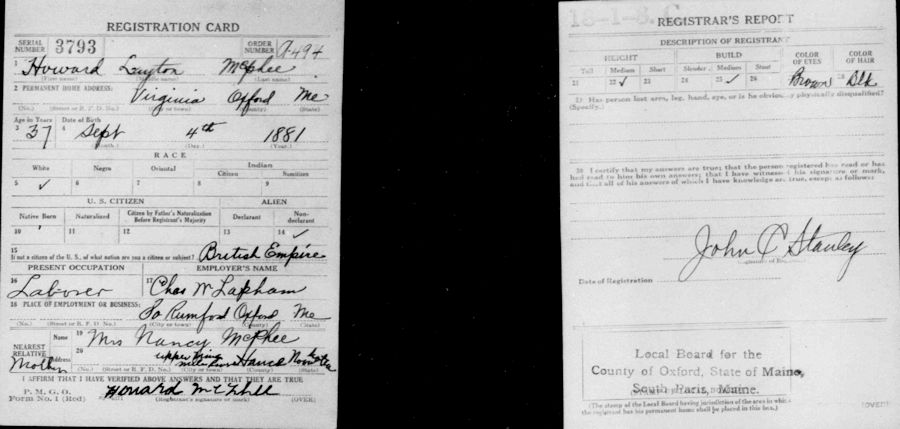 REGISTRATION CARD
SERIAL NUMBER 3793 ORDER NUMBER A-494
1 Howard Layton McPhee
(First name) (Middle name) (Last name)
2 PERMANENT HOME ADDRESS:
Virginia Oxford Me
(No.) (Street or R. F. D. No.) (City or town) (County) (State)
Age in Years Date of Birth
3 37 4 Sept 4th 1881
(Month.) (Day.) (Year.)
RACE
White Negro Oriental Indian
Citizen Noncitizen
5 ✓ 6 7 8 9
U. S. CITIZEN ALIEN
Native Born Naturalized Citizen by Father's Naturalization Before Registrant's Majority Declarant Non-declarant
10 11 12 13 14 ✓
15
If not a citizen of the U. S., of what nation are you a citizen or subject? British Empire
PRESENT OCCUPATION EMPLOYER'S NAME
16 Laborer 17 Chas W Lapham
18 PLACE OF EMPLOYMENT OR BUSINESS:
So Rumford Oxford Me
(No.) (Street or R. F. D. No.) (City or town) (County) (State)
NEAREST RELATIVE Name 19 Mrs Nancy McPhee
Mother Address 20 upper Hance Nova Scotia
(No.) (Street or R. F. D. No.) (City or town) (County) (State)
I AFFIRM THAT I HAVE VERIFIED ABOVE ANSWERS AND THAT THEY ARE TRUE
P. M. G. O.
Form No. 1 (Red) Howard McPhee
(Registrant's signature or mark) (OVER)
REGISTRAR'S REPORT
DESCRIPTION OF REGISTRANT
HEIGHT BUILD COLOR OF EYES COLOR OF HAIR
Tall Medium Short Slender Medium Stout
21 22 ✓ 23 24 25 ✓ 26 27 Brown 28 Blk
29 Has person lost arm, leg, hand, eye, or is he obviously physically disqualified?
(Specify.)
30 I certify that my answers are true; that the person registered has read or has
had read to him his own answers; that I have witnessed his signature or mark,
and that all of his answers of which I have knowledge are true, except as follows:
John C Stanley
(Signature of Registrar)
Date of Registration
Local Board for the
County of Oxford, State of Maine,
South Paris, Maine.
(STAMP OF LOCAL BOARD)
(The stamp of the Local Board having jurisdiction of the area in which
the registrant has his permanent home shall be placed in this box.)
(OVER)